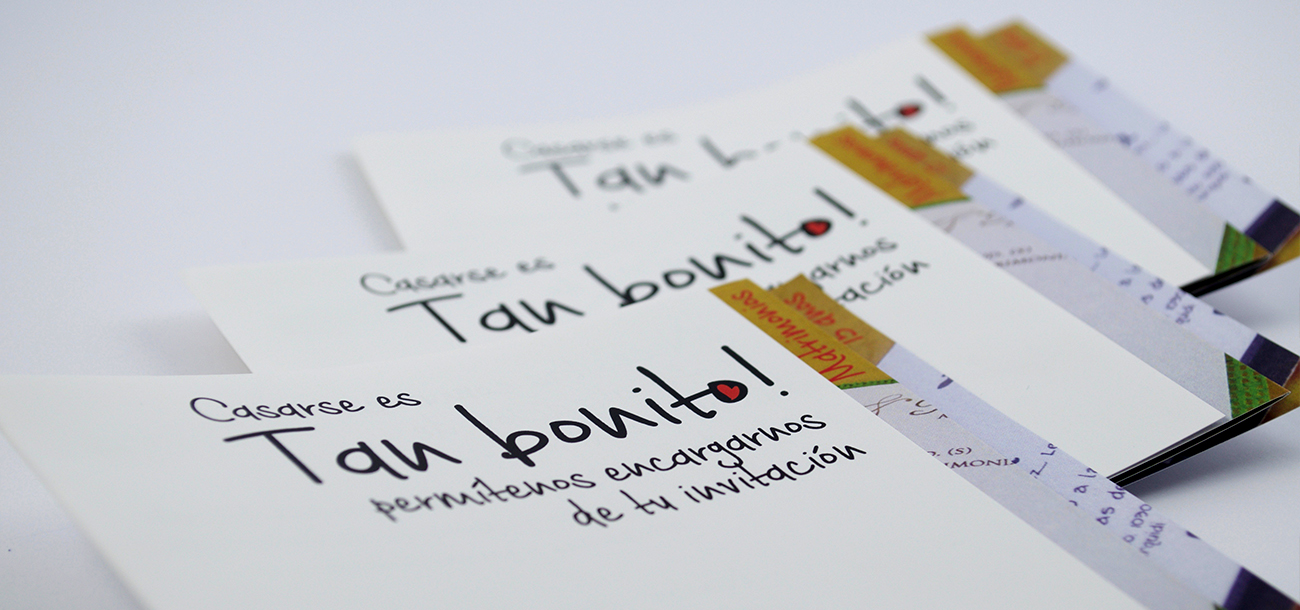 Casarse es
Tan bonito!
Casarse es
Tan bonito!
Matrimonios
Casarse es
Tan bonito!
permítenos encargarnos
de tu invitación
Matrimonios
15 años